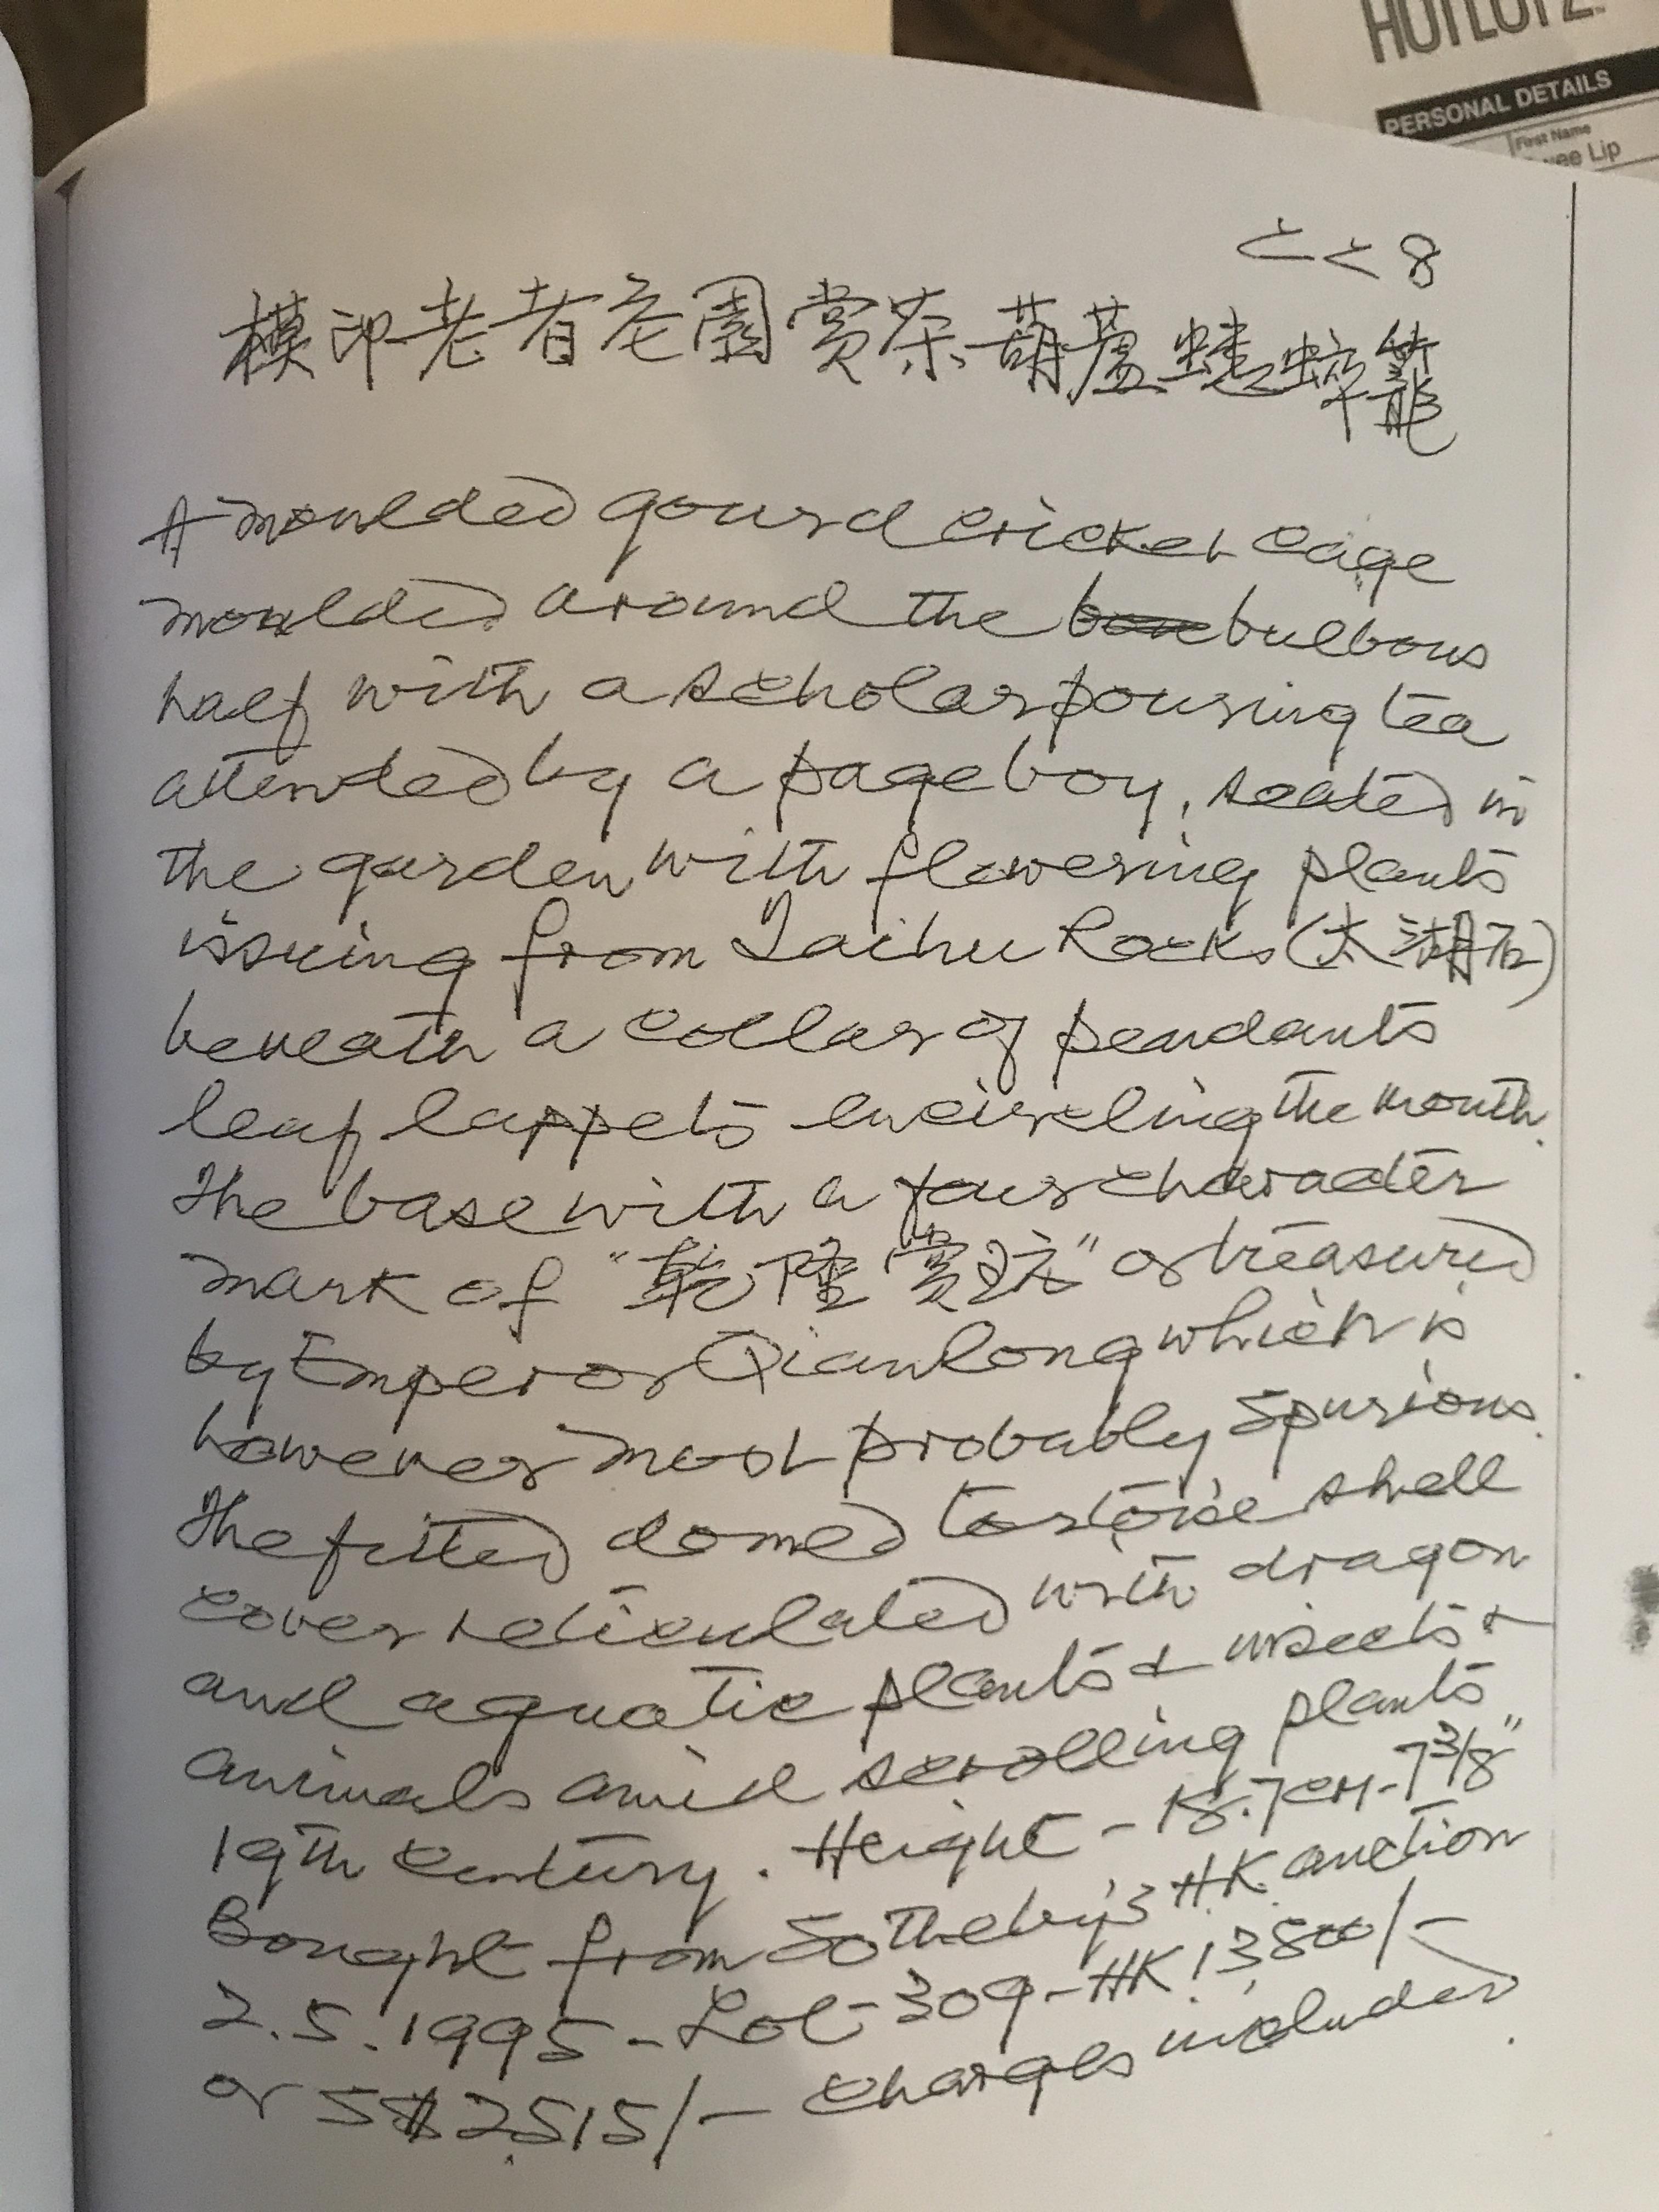 HOTLOTZ
PERSONAL DETAILS
First Name
Lip
228
模印老者在園賞茶葫蘆蟋蟀籠
A moulded gourd cricket cage
moulded around the bulbous
half with a scholar pouring tea
attended by a pageboy, seated in
the garden with flowering plants
issuing from Taihu Rocks (太湖石)
beneath a collar of pendants
leaf lappets encircling the mouth.
The base with a four character
mark of "乾隆賞玩" or treasured
by Emperor Qianlong which is
however most probably spurious.
The fitted domed tortoise shell
cover reticulated with dragon
and aquatic plants & insects &
animals amid scrolling plants
19th century. Height - 18.7cm - 7 3/8"
Bought from Sotheby's HK auction
2.5.1995 - Lot - 309 - HK 13,800/-
or S$2515/- charges included.